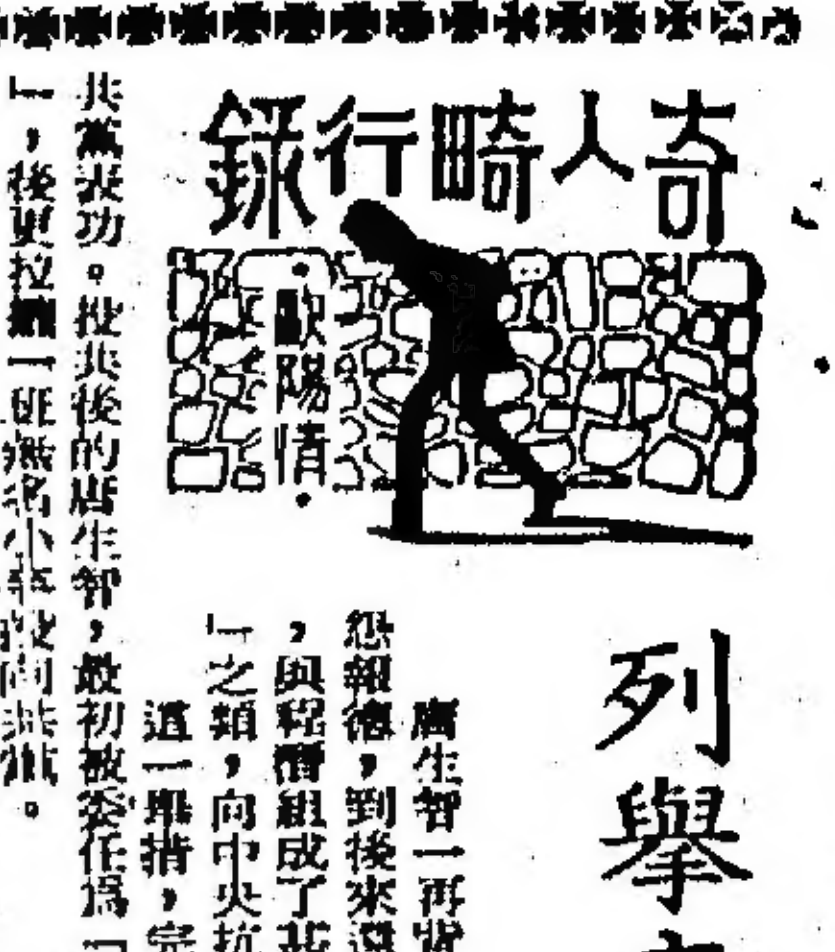 奇人畸行錄
·歐陽情·
列舉
唐生智一再
怨報德，到後來還
，與程潛組成了
」之類，向中央抗
這一舉措，完
共黨表功。投共後的唐生智，最初被委任爲「
」，後更拉 一班無名小卒投向共黨。